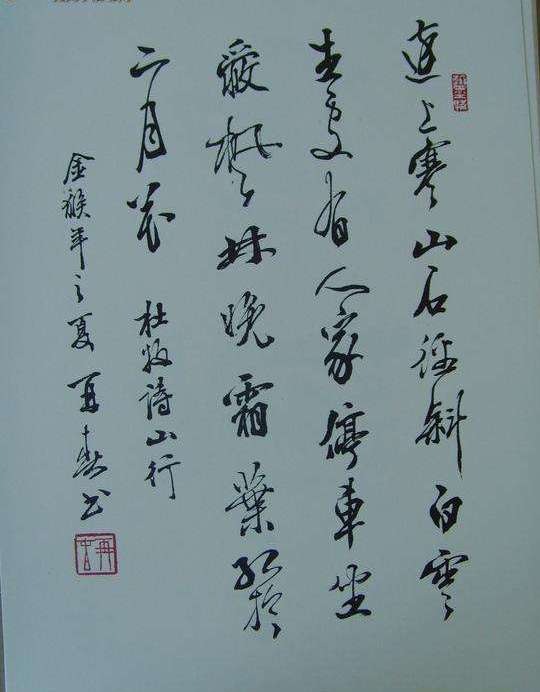 遠上寒山石徑斜白雲
生處有人家停車坐
愛楓林晚霜葉紅於
二月花
杜牧詩山行
金猴年之夏 夏書